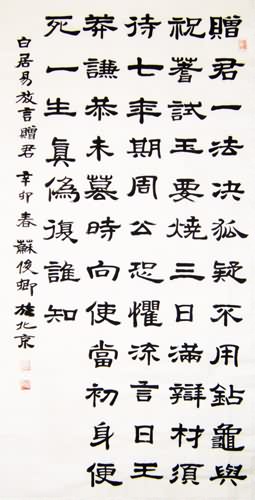 贈君一法决狐疑不用鉆龜與
祝蓍試玉要燒三日滿辯材須
待七年期周公恐懼流言日王
莽謙恭未篡時向使當初身便
死一生眞偽復誰知
白居易放言贈君辛卯春蘇俊卿於北京